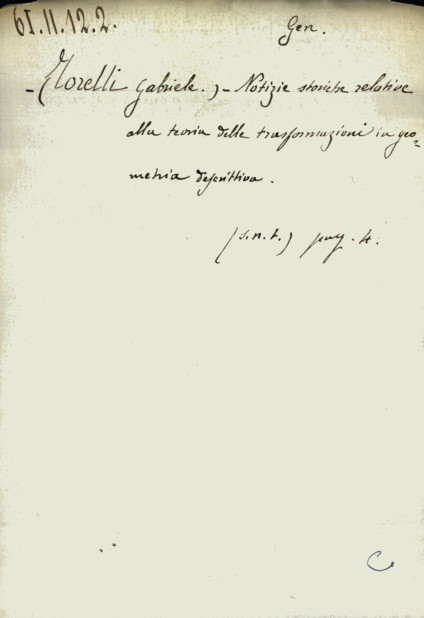 61.II.12.2.
Gen.
- Torelli Gabriele.) - Notizie storiche relative
alla teoria delle trasformazioni in geo=
metria descrittiva.
(s.n.t.) pag. 4.
C